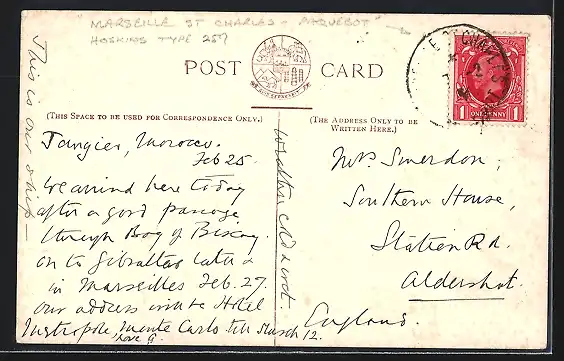 MARSEILLE ST CHARLES - PAQUEBOT
HOSKINS TYPE 257
POST CARD
(THIS SPACE TO BE USED FOR CORRESPONDENCE ONLY.)
(THE ADDRESS ONLY TO BE
WRITTEN HERE.)
This is our ship —
Tangier, Morocco.
Feb 25.
We arrived here today
after a good passage
through Bay of Biscay.
on to Gibraltar later &
in Marseilles Feb. 27.
our address will be Hotel
Metropole Monte Carlo till March 12.
Love G.
Weather cold & wet.
Mrs Smerdon,
Southern House,
Station Rd.
Aldershot.
England.
1 ONE PENNY 1